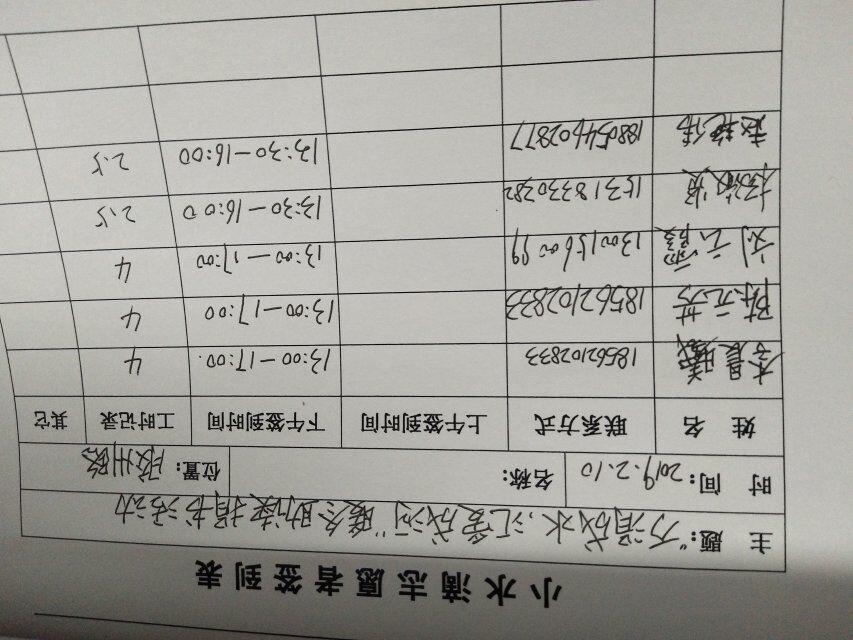 小水滴志愿者签到表
主 题：“万涓成水，汇爱成河”暖冬助读捐书活动
时 间：2019.2.10 名称： 位置：胶州路
姓 名 联系方式 上午签到时间 下午签到时间 工时记录 其它
李晨曦 18562102833 13:00—17:00 4
陈元芳 18562102833 13:00—17:00 4
刘云霞 13:00—17:00 4
杨淑俊 15318330382 13:30—16:00 2.5
赵艳伟 188054602877 13:30—16:00 2.5